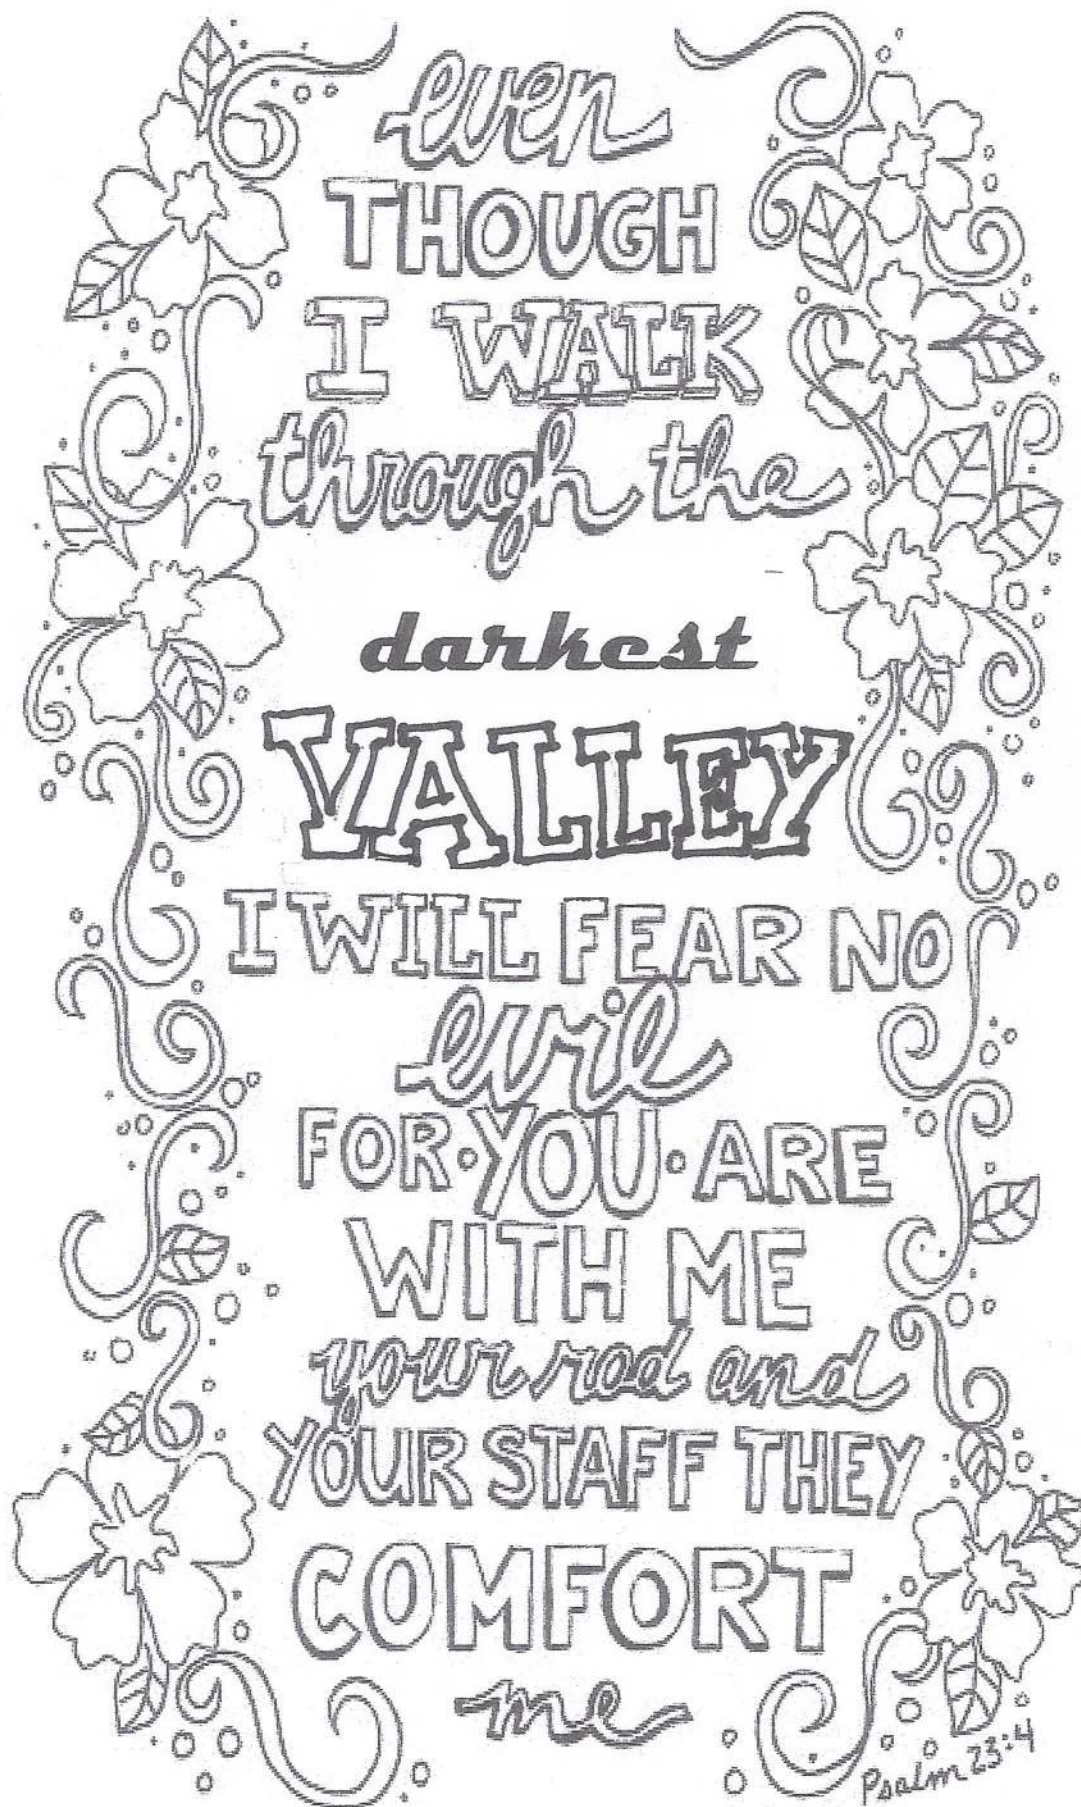 even
THOUGH
I WALK
through the
darkest
VALLEY
I WILL FEAR NO
evil
FOR·YOU·ARE
WITH ME
your rod and
YOUR STAFF THEY
COMFORT
me
Psalm 23:4